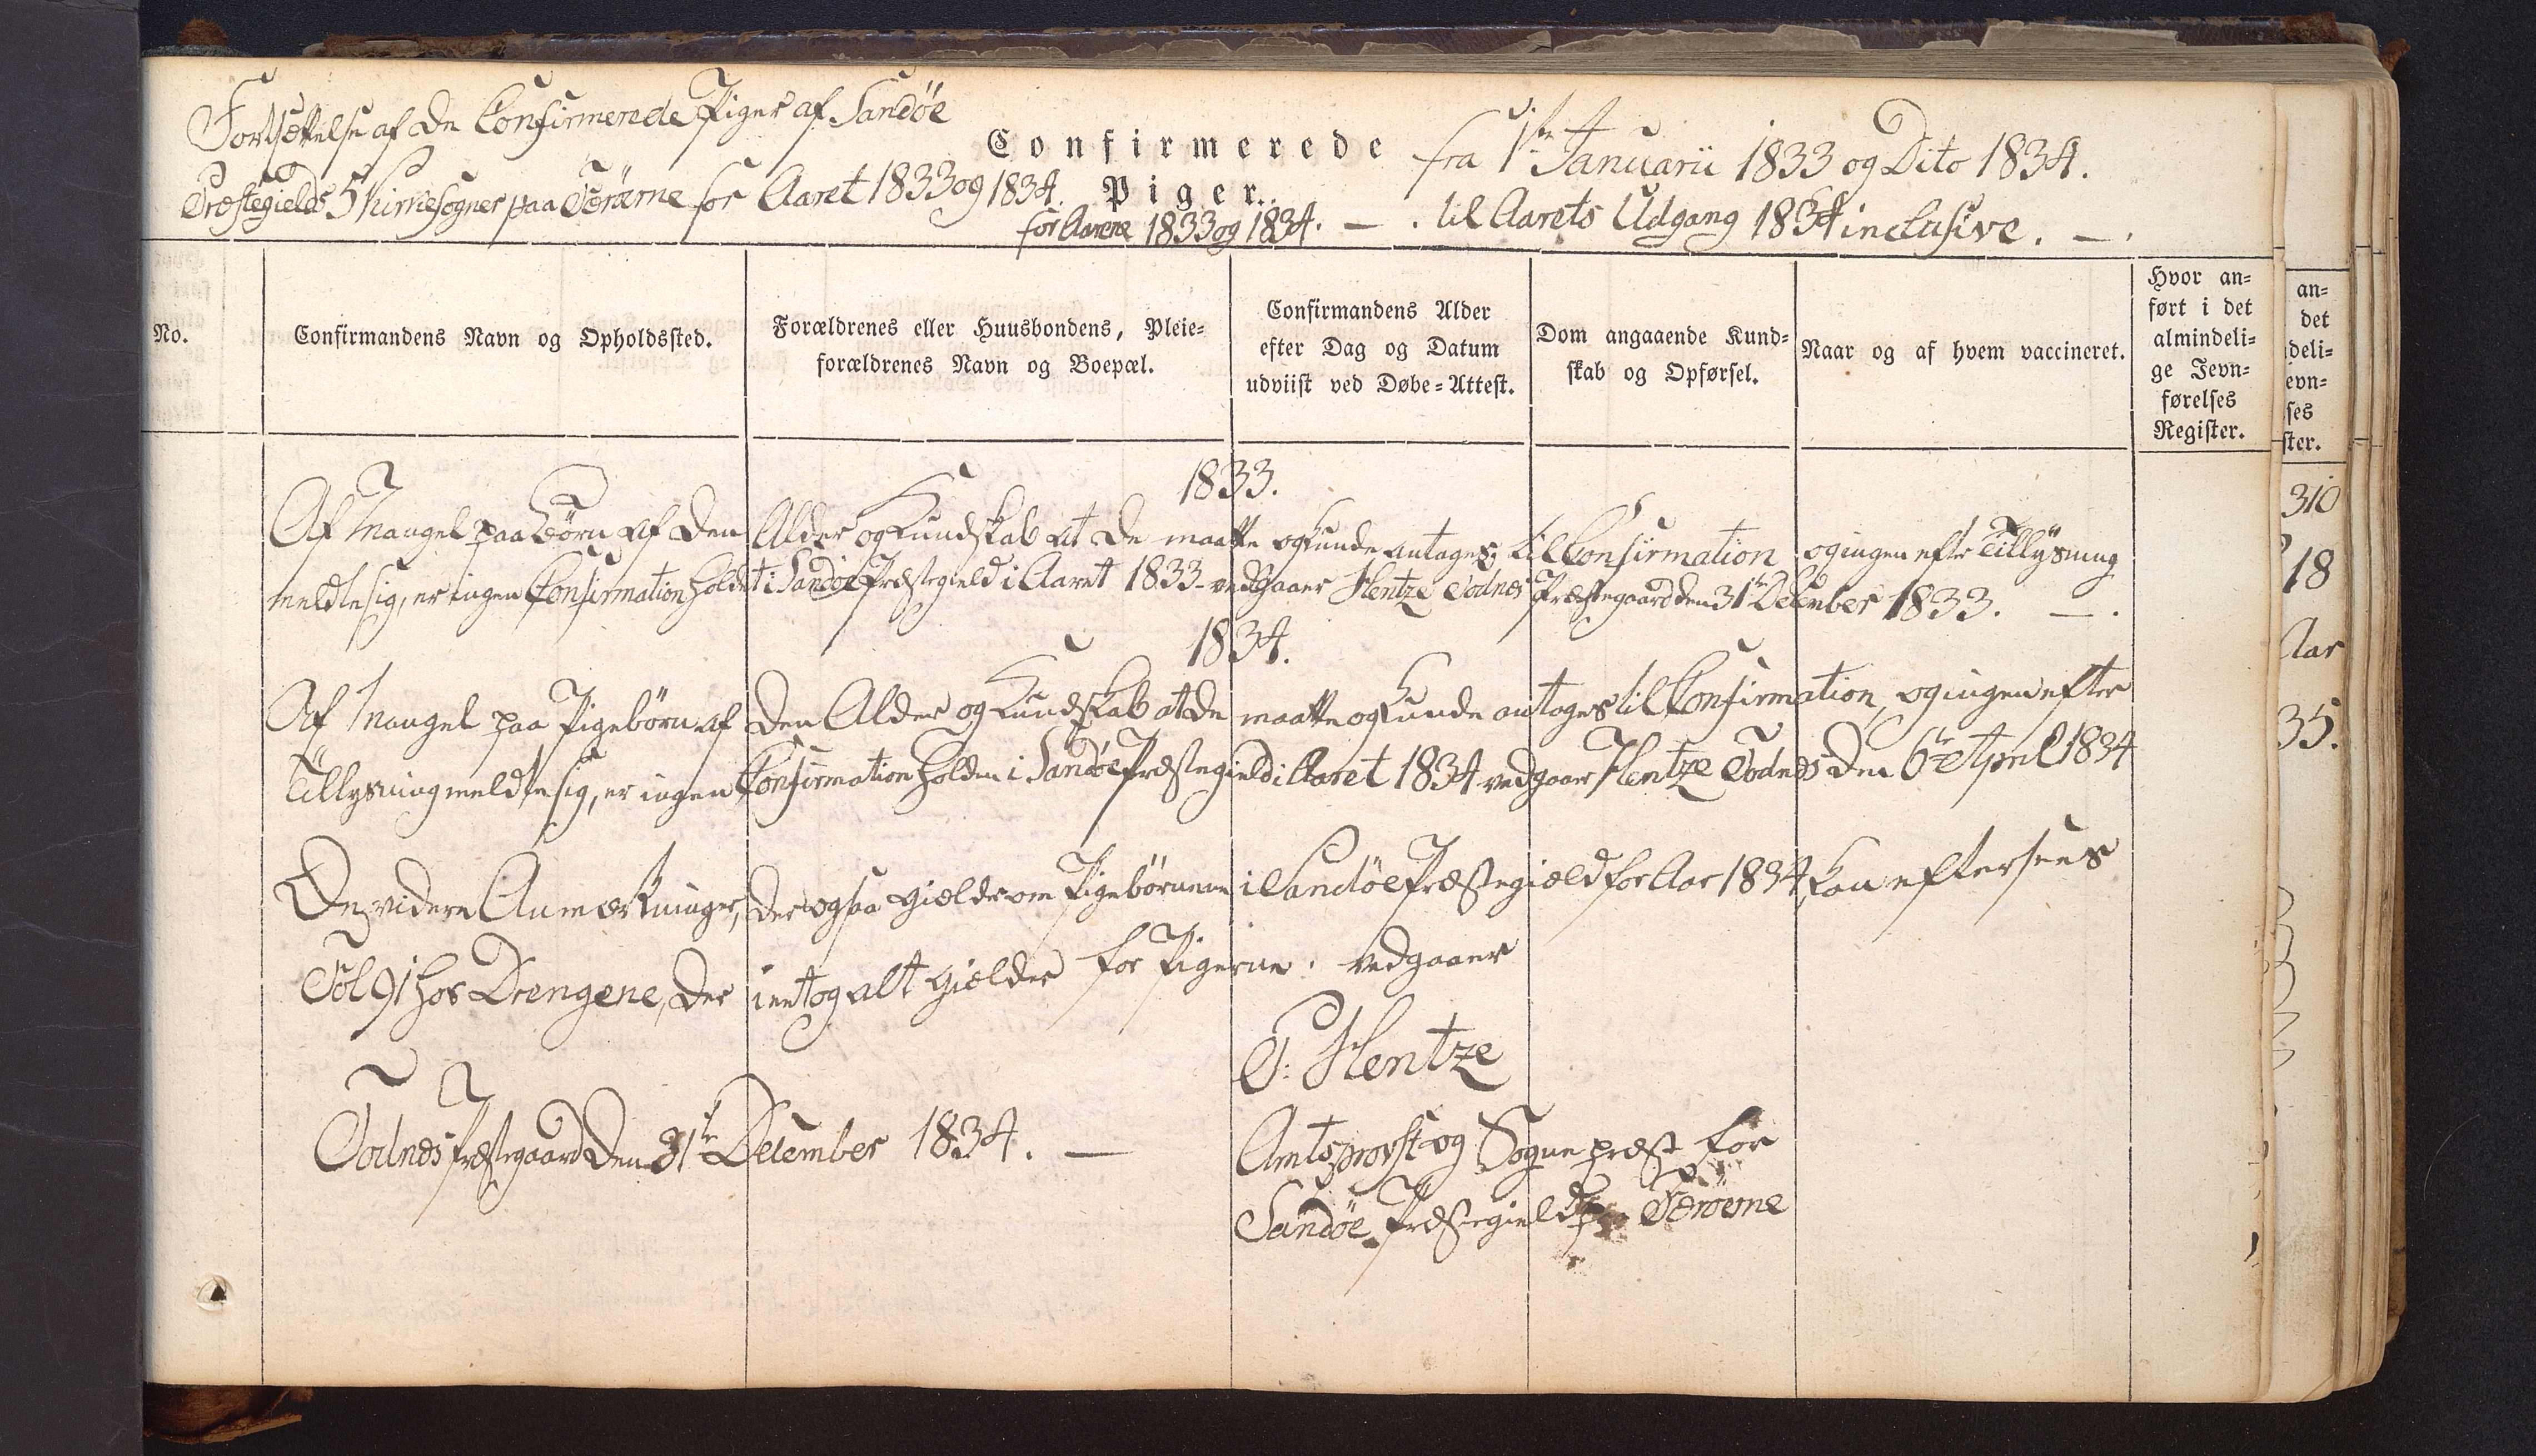 Fortsættelse af de Confirmerede Piger af Sandöe
Præstegields 5 Kirkesogner paa Færöerne for Aaret 1833 og 1834.
Confirmerede
Piger.
for Aarene 1833 og 1834. — .
fra 1ste Januarii 1833 og Dito 1834.
til Aarets Udgang 1834 inclusive. — .
No.
Confirmandens Navn og Opholdssted.
Forældrenes eller Huusbondens, Pleie-
forældrenes Navn og Boepæl.
Confirmandens Alder
efter Dag og Datum
udviist ved Døbe-Attest.
Dom angaaende Kund-
skab og Opførsel.
Naar og af hvem vaccineret.
Hvor an-
ført i det
almindeli-
ge Jevn-
førelses
Register.
1833.
Af Mangel paa Börn af den Alder og Kundskab at de maatte og kunde antages til Confirmation og ingen efter Tillÿsning
meldte sig, er ingen Confirmation holdet i Sandöe Præstegield i Aaret 1833 - vedgaaer Hentze Todnæs Præstegaard den 31te December 1833. — .
1834.
Af Mangel paa Pigebörn af den Alder og Kundskab at de maatte og kunde antages til Confirmation, og ingen efter
Tillysning meldte sig, er ingen Confirmation holden i Sandöe Præstegield i Aaret 1834 vedgaaer Hentze Todnæs den 6te April 1834
De videre Anmærkninger, der ogsaa gielder om Pigebörnene i Sandöe Præstegield for Aar 1834, kan eftersees
Fol 91 hos Drengene, der i eet og alt gielder for Pigerne. vedgaaer
P: Hentze
Todnæs Præstegaard den 31te December 1834. —
Amtsprovst og Sognepræst for
Sandöe Præstegield Færöerne
an-
det
deli-
evn-
ses
ster.
310
18
Aar
35.